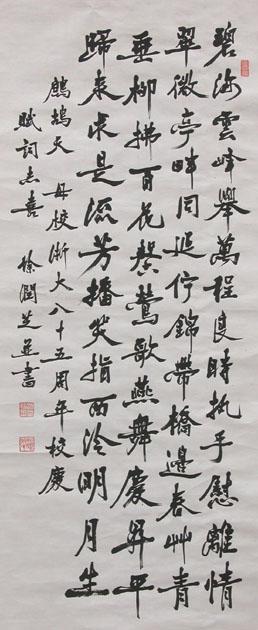 碧海雲峰舉萬程良時執手慰離情
翠微亭畔同延佇錦帶橋邊春艸青
垂柳拂百花馨鶯歌燕舞慶昇平
歸來求是流芳播笑指西泠明月生
鷓鴣天 母校浙大八十五周年校慶
賦詞志喜 徐潤芝並書